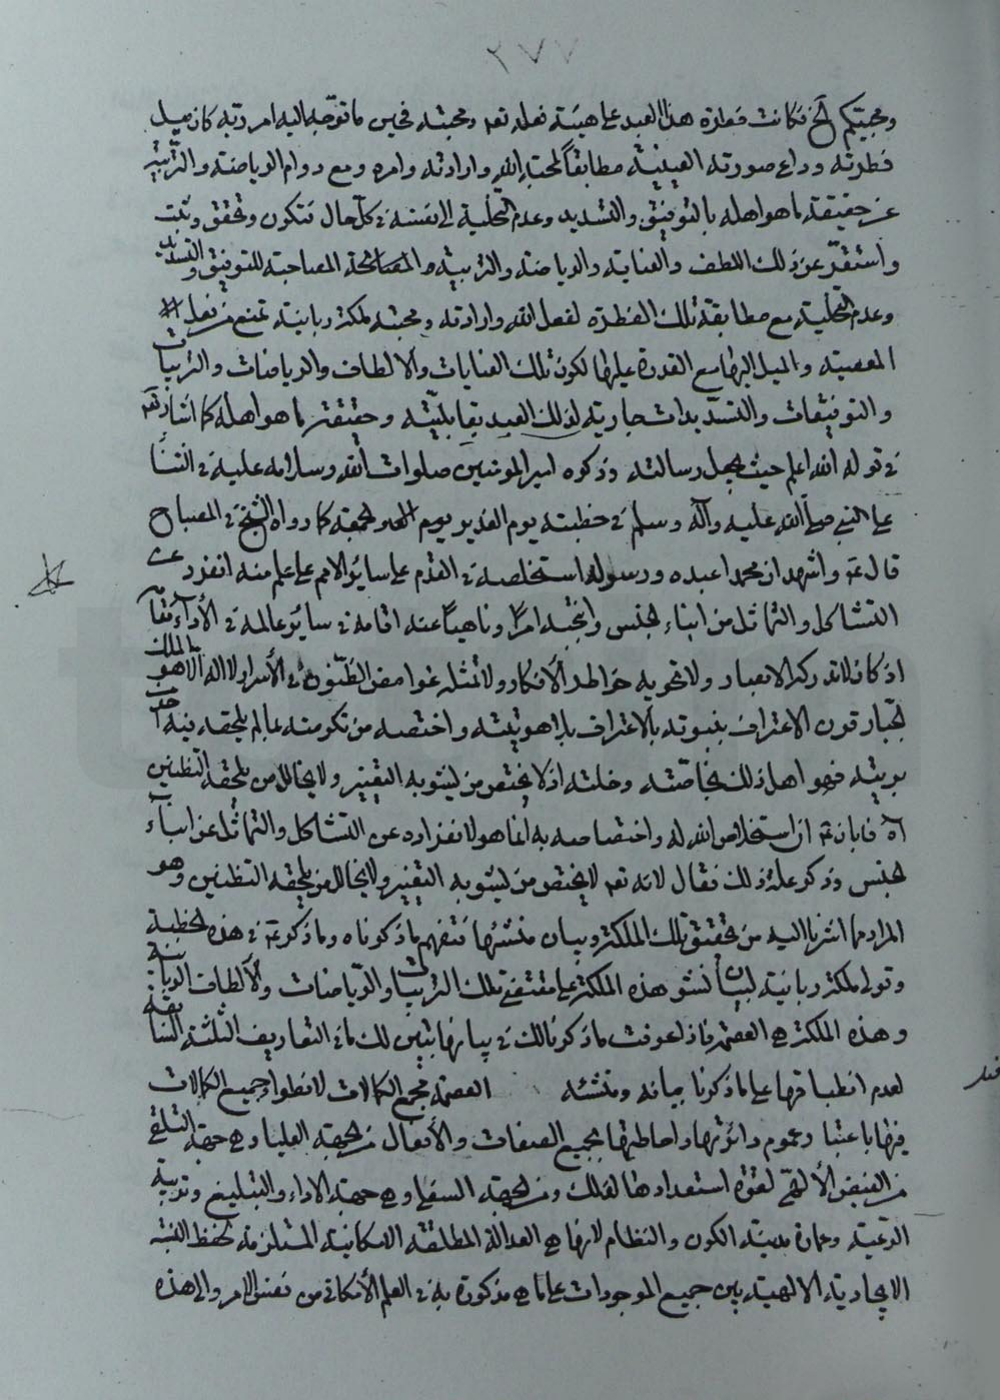 ٢٧٧
ومحبتكم الخ فكانت فطرة هذا العبد على هيئة فعله تعم ومحبته فحين ما توجه اليه امر ربه كان ميل
فطرته وداع صورته العينية مطابقاً لمحبة الله وارادته وامره ومع دوام الرياضة والتربية
عن حقيقة ما هو اهله بالتوفيق والتسديد وعدم التخلية الى نفسه فى كل حال فتكون وتحقق وثبت
واستقر عن ذلك اللطف والعناية والرياضة والتربية المصاحبة للتوفيق والتسديد
وعدم التخلية مع مطابقة تلك الفطرة لفعل الله وارادته ومحبته ملكة ربانية تمنع من فعل
المعصية والميل اليها مع القدرة عليها لكون تلك العنايات والالطاف والرياضات والتربيات
والتوفيقات والتسديدات جارية لذلك العبد بقابليته وحقيقة ما هو اهله كما اشار تعم
فى قوله الله اعلم حيث يجعل رسالته وذكره امير المؤمنين صلوات الله وسلامه عليه فى الثنا
على النبى صلى الله عليه وآله وسلم فى خطبته يوم الغدير ويوم الجمعة كما رواه الشيخ فى المصباح
قال ع واشهد ان محمدا عبده ورسوله استخلصه فى القدم على سائر الامم على علم منه انفرد عن
التشاكل والتماثل من ابناء الجنس وانتجبه امرًا وناهيًا عنه اقامه فى سائر عالمه فى الأداء مقامه
اذ كان لا تدركه الابصار ولا تحويه خواطر الأفكار ولا تمثله غوامض الظنون فى الأسرار لا اله الا هو الملك
الجبار قرن الاعتراف بنبوته بالاعتراف بلاهوتيته واختصه من تكرمته بما لم يلحقه فيه احد من
بريته فهو اهل ذلك بخاصته وخلته اذ لا يختص من يشوبه التغيير ولا يخالل من يلحقه التظنين
اه فابان ع ان استخلاص الله له واختصاصه به انما هو لانفراده عن التشاكل والتماثل عن ابناء
الجنس وذكر علة ذلك فقال لانه تعم لا يختص من يشوبه التغيير ولا يخالل من يلحقه التظنين وهو
المراد مما اشرنا اليه من تحقيق تلك الملكة وبيان منشئها فتفهم ما ذكرناه وما ذكر ع فى هذه الخطبة
وقولى ملكة ربانية لبيان نشو هذه الملكة على مقتضى تلك التربيات والرياضات والألطاف الربانية
وهذه الملكة هى العصمة فاذا عرفت ما ذكرنا لك فى بيانها تبين لك ما فى التعاريف الثلثة السابقة
لعدم انطباقها على ما ذكرنا بيانه ومنشئه العصمة مجمع الكمالات لانطواء جميع الكمالات
فيها باعتبار عموم دائرتها واحاطتها بجميع الصفات والأفعال من الجهة العليا وهى جهة التلقى
من الفيض الألهى لقوة استعدادها لذلك ومن الجهة السفلى وهى جهة الاداء والتبليغ وتربية
الرعية وعمارة مدينة الكون والنظام لانها هى العدالة المطلقة الامكانية المستلزمة لحفظ النسبة
الايجادية الالهية بين جميع الموجودات على ما هى مذكورة به فى العلم الأمكانى من نفس الامر والى هذه